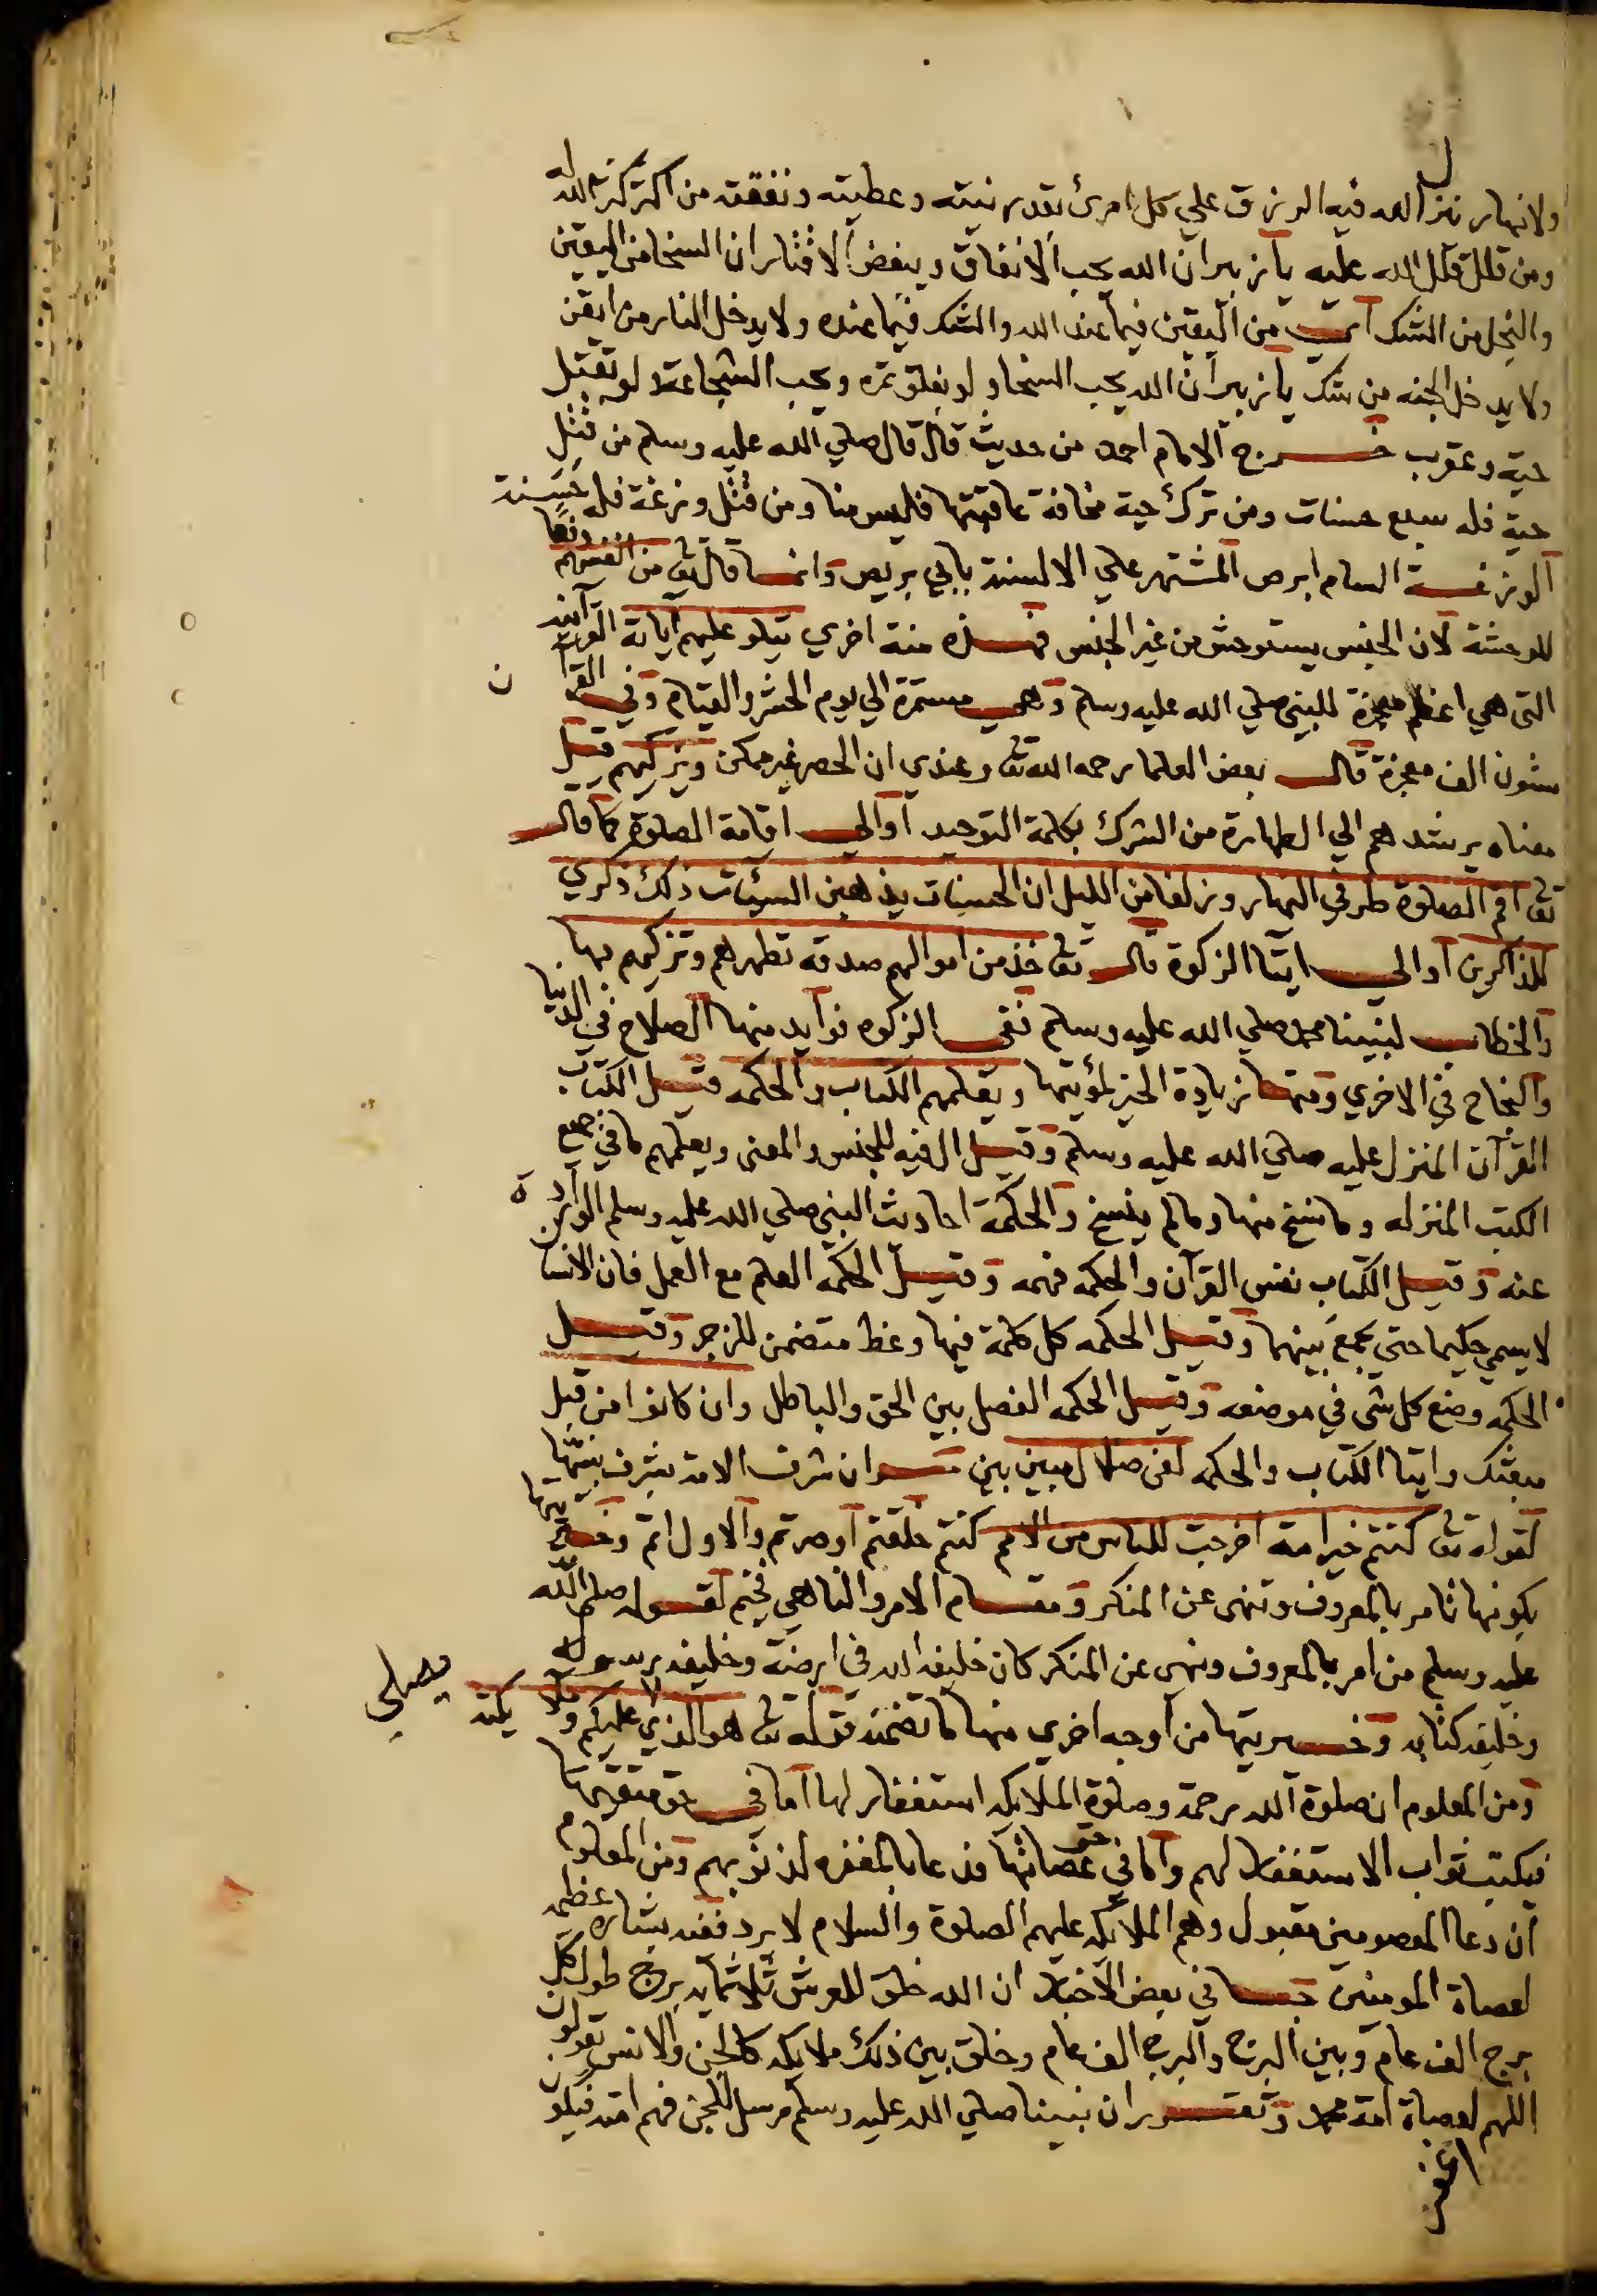 ولانهار ينزل الله فيه الرزق علي كل امرئ بقدر نيته وعطيته ونفقته من اكثر كثر الله له
ومن قلل قلل الله عليه يا زبير ان الله يحب الانفاق ويبغض الاقتار ان السخا من اليقين
والبخل من الشك من اليقين فيما عند الله والشك فيما عنده ولا يدخل النار من ايقن
ولا يدخل الجنه من شك يا زبير ان الله يحب السخا ولو بفلق تمره ويحب الشجاعة ولو بقتل
حية وعقرب خرج الامام احمد من حديث قال قال صلي الله عليه وسلم من قتل
حية فله سبع حسنات ومن ترك حية مخافة عاقبتها فليس منا ومن قتل وزغة فله حسنة
الوزغة السام ابرص المشتهر علي الالسنة بابي بريص وانما قال تع من انفسهم دفعا
للوحشة لان الجنس يستوحش من غير الجنس فهذه منة اخري يتلو عليهم آياته القرآنيه
التي هي اعظم معجزة للنبي صلي الله عليه وسلم وهي مستمرة الي يوم الحشر والقيام وفي القرآن
ستون الف معجزة قال بعض العلما رحمه الله تع وعندي ان الحصر غير ممكن ويزكيهم قيل
معناه يرشدهم الي الطهارة من الشرك بكلمة التوحيد او الي اقامة الصلوة كما قال
تع اقم الصلوة طرفي النهار وزلفا من الليل ان الحسنات يذهبن السيئات ذلك ذكري
للذاكرين او الي ايتا الزكوة قال تع خذ من اموالهم صدقة تطهرهم وتزكيهم بها
والخطاب لنبينا محمد صلي الله عليه وسلم ففي الزكوه فوايد منها الصلاح في الدنيا
والنجاح في الاخري ومنها زيادة الخير لمؤتيها ويعلمهم الكتاب والحكمه قيل الكتاب
القرآن المنزل عليه صلي الله عليه وسلم وقيل ال فيه للجنس والمعنى ويعلمهم ما في جميع
الكتب المنزله وما نسخ منها وما لم ينسخ والحكمة احاديث النبي صلي الله عليه وسلم الواردة
عنه وقيل الكتاب نفس القرآن والحكمه فهمه وقيل الحكمه العلم مع العمل فان الانسان
لا يسمي حكيما حتي يجمع بينهما وقيل الحكمه كل كلمة فيها وعظ متضمن للزجر وقيل
الحكمه وضع كل شي في موضعه وقيل الحكمه الفصل بين الحق والباطل وان كانوا من قبل
مبعثك وايتا الكتاب والحكمه لفي ضلال مبين بين ان شرف الامة بشرف نبيها
لقوله تع كنتم خير امة اخرجت للناس من الامم كنتم خلقتم او صرتم والاول اتم وخيريتها
بكونها تامر بالمعروف وتنهى عن المنكر ومقام الامر والناهي فخيم لقوله صلى الله
عليه وسلم من امر بالمعروف ونهى عن المنكر كان خليفة الله في ارضه وخليفه رسوله
وخليفه كتابه وخيريتها من اوجه اخري منها ما تضمنه قوله تع هو الذي يصلي عليكم وملايكته
ومن المعلوم ان صلوة الله رحمة وصلوة الملايكه استغفار لها اما في حق متقيها
فيكتب ثواب الاستغفار لهم واما في حق عصاتها فدعا بالمغفره لذنوبهم ومن المعلوم
ان دعا المعصومين مقبول وهم الملايكه عليهم الصلوة والسلام لا يرد ففيه بشاره عظيمه
لعصاة المومنين في بعض الاخبار ان الله خلق للعرش ثلاثمايه برج طول كل
برج الف عام وبين البرج والبرج الف عام وخلق بين ذلك ملايكه كالجن والانس يقولون
اللهم لعصاة امة محمد وتقرر ان نبينا صلي الله عليه وسلم مرسل للجن فهم امته فيكون
اغفر